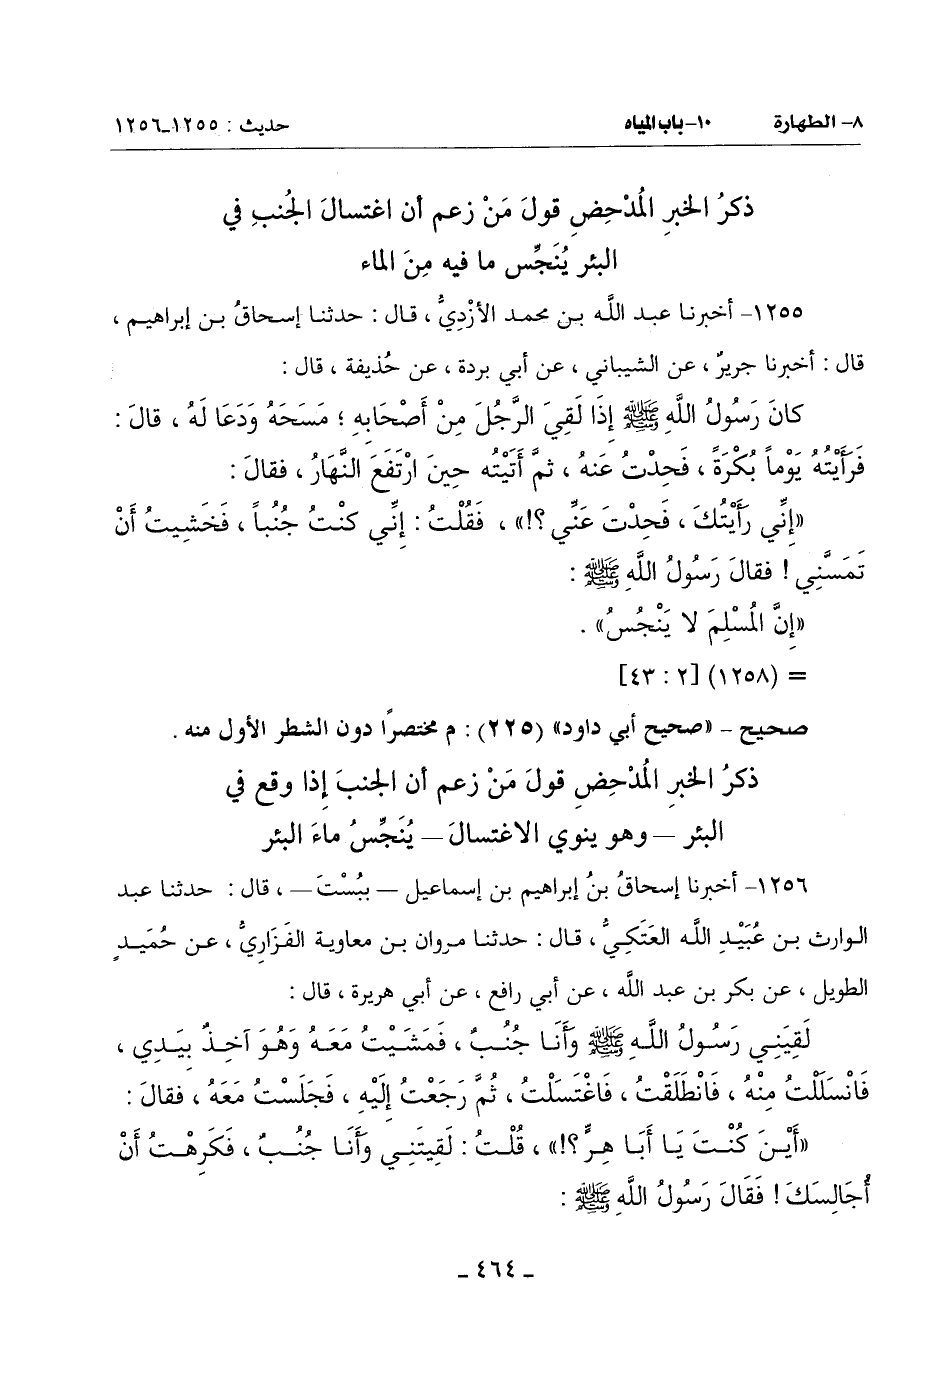 ٨- الطهارة ١٠-باب المياه حديث : ١٢٥٥-١٢٥٦
ذكرُ الخبرِ المُدْحِضِ قولَ مَنْ زعم أن اغتسالَ الجُنبِ في
البئر يُنَجِّس ما فيه مِنَ الماء
١٢٥٥- أخبرنا عبد اللَّه بن محمد الأزْديُّ ، قال : حدثنا إسحاقُ بن إبراهيم ،
قال : أخبرنا جريرٌ ، عن الشيباني ، عن أبي بردة ، عن حُذيفة ، قال :
كانَ رَسُولُ اللَّهِ ﷺ إذَا لَقِيَ الرَّجُلَ مِنْ أَصْحَابِهِ ؛ مَسَحَهُ وَدَعَا لَهُ ، قالَ :
فَرَأَيْتُهُ يَوْماً بُكْرَةً ، فَحِدْتُ عَنهُ ، ثمَّ أَتَيْتُه حينَ ارْتَفَعَ النَّهَارُ ، فقالَ :
«إِنِّي رَأَيْتُكَ ، فَحِدْتَ عَنِّي ؟!» ، فَقُلْتُ : إِنِّي كنْتُ جُنُباً ، فَخَشِيتُ أَنْ
تَمَسَّنِي ! فقالَ رَسُولُ اللَّهِ ﷺ :
«إنَّ المُسْلِمَ لا يَنْجُسُ» .
= (١٢٥٨) [٢ : ٤٣]
صحيح - «صحيح أبي داود» (٢٢٥) : م مختصرًا دون الشطر الأول منه .
ذكرُ الخبرِ المُدْحِضِ قولَ مَنْ زعم أن الجنبَ إذا وقع في
البئر – وهو ينوي الاغتسالَ – يُنَجِّسُ ماءَ البئر
١٢٥٦- أخبرنا إسحاقُ بنُ إبراهيم بن إسماعيل – ببُسْتَ – ، قال : حدثنا عبد
الوارث بن عُبَيْدِ اللَّه العَتَكِيُّ ، قال : حدثنا مروان بن معاوية الفَزَاريُّ ، عن حُمَيدٍ
الطويل ، عن بكر بن عبد اللَّه ، عن أبي رافع ، عن أبي هريرة ، قال :
لَقِيَنِي رَسُولُ اللَّهِ ﷺ وَأَنَا جُنُبٌ ، فَمَشَيْتُ مَعَهُ وَهُوَ آخِذٌ بِيَدِي ،
فَانْسَلَلْتُ مِنْهُ ، فَانْطَلَقْتُ ، فَاغْتَسَلْتُ ، ثُمَّ رَجَعْتُ إلَيْهِ ، فَجَلَسْتُ مَعَهُ ، فقالَ :
«أَيْنَ كُنْتَ يَا أَبَا هِرٍّ ؟!» ، قُلْتُ : لَقِيتَنِي وَأَنَا جُنُبٌ ، فَكَرِهْتُ أَنْ
أُجَالِسَكَ ! فَقَالَ رَسُولُ اللَّهِ ﷺ :
- ٤٦٤ -